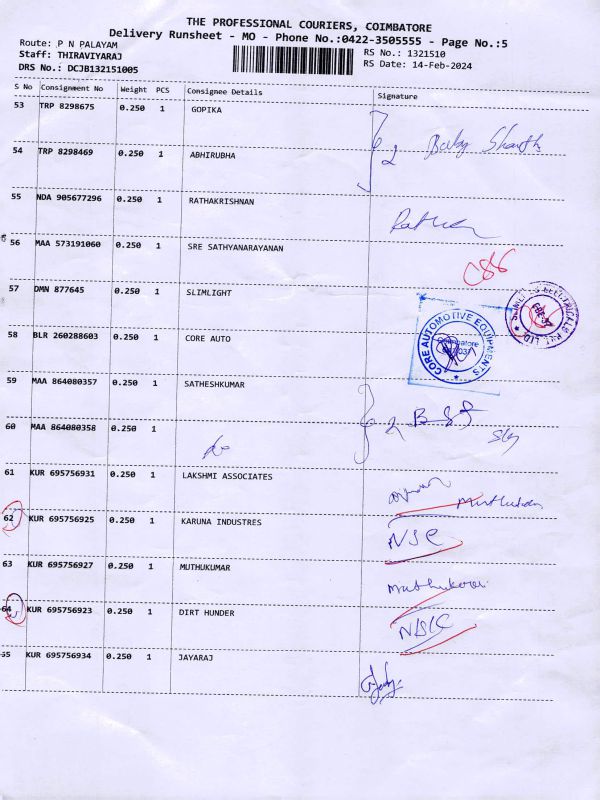 THE PROFESSIONAL COURIERS, COIMBATORE
Delivery Runsheet - MO - Phone No.:0422-3505555 - Page No.:5
Route: P N PALAYAM
Staff: THIRAVIYARAJ
DRS No.: DCJB132151005
RS No.: 1321510
RS Date: 14-Feb-2024
S No Consignment No Weight PCS Consignee Details Signature
53 TRP 8298675 0.250 1 GOPIKA
54 TRP 8298469 0.250 1 ABHIRUBHA
2 Baby
55 NDA 905677296 0.250 1 RATHAKRISHNAN
56 MAA 573191060 0.250 1 SRE SATHYANARAYANAN
57 DMN 877645 0.250 1 SLIMLIGHT
58 BLR 260288603 0.250 1 CORE AUTO
CORE AUTOMOTIVE EQUIPMENTS
Coimbatore
59 MAA 864080357 0.250 1 SATHESHKUMAR
60 MAA 864080358 0.250 1
2
61 KUR 695756931 0.250 1 LAKSHMI ASSOCIATES
62 KUR 695756925 0.250 1 KARUNA INDUSTRES NSC
63 KUR 695756927 0.250 1 MUTHUKUMAR
64 KUR 695756923 0.250 1 DIRT HUNDER
65 KUR 695756934 0.250 1 JAYARAJ